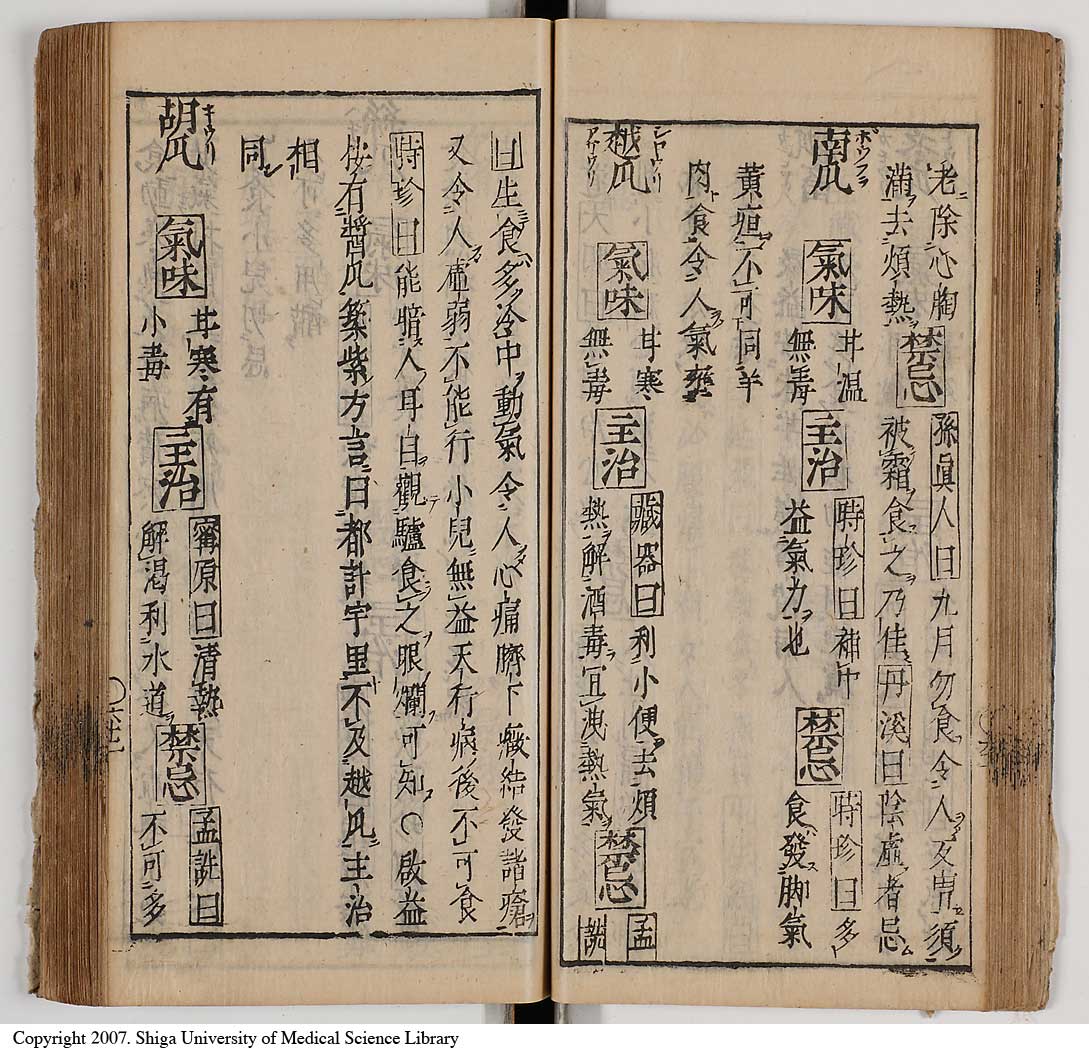 老除心胸
滿去煩熱
禁忌
孫眞人曰九月勿食令人反胃須
被霜食之乃佳丹溪曰陰虛者忌
ボウフラ
南瓜
氣味
甘溫
無毒
主治
時珍曰補中
益氣力也
禁忌
時珍曰多
食發脚氣
黃疸不可同羊
肉食令人氣壅
シロウリ
越瓜
アサウリ
氣味
甘寒
無毒
主治
藏器曰利小便去煩
熱解酒毒宜洩熱氣
禁忌
孟
詵
曰生食多冷中動氣令人心痛臍下癥結發諸瘡
又令人虛弱不能行小兒無益天行病後不可食
時珍曰能暗人耳目觀驢食之眼爛可知〇啟益
按有醬瓜築紫方言曰都計宇里不及越瓜主治
相
同
キウリ
胡瓜
氣味
甘寒有
小毒
主治
寗原曰清熱
解渴利水道
禁忌
孟詵曰
不可多
Copyright 2007. Shiga University of Medical Science Library